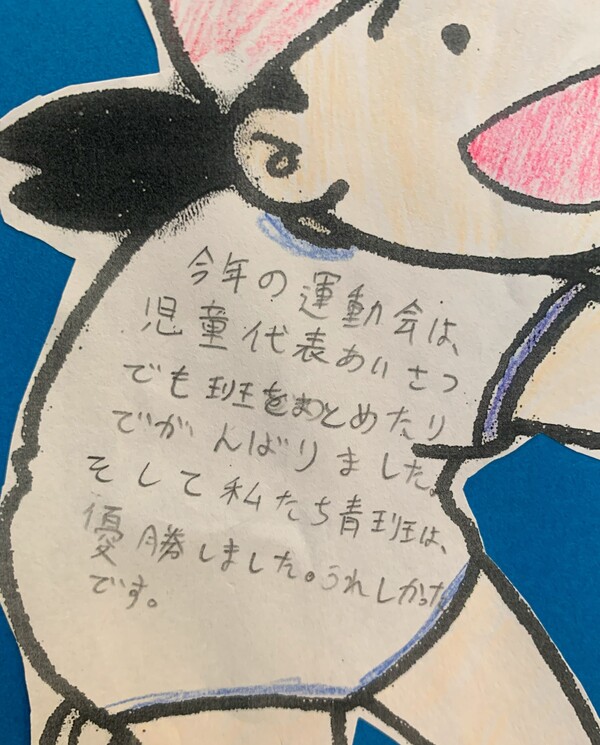 今年の運動会は、
児童代表あいさつ
でも班をまとめたり
でがんばりました。
そして私たち青班は、
優勝しました。うれしかった
です。